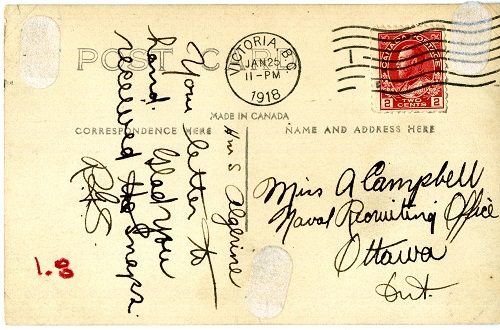 POST CARD
VICTORIA, B.C.
JAN 25
11-PM
1918
CANADA POSTAGE
2 TWO CENTS 2
MADE IN CANADA
CORRESPONDENCE HERE
NAME AND ADDRESS HERE
Hms Algerine
Your letter to
hand Glad you
received the snaps.
Miss A Campbell
Naval Recruiting Office
Ottawa
Ont.
1.00